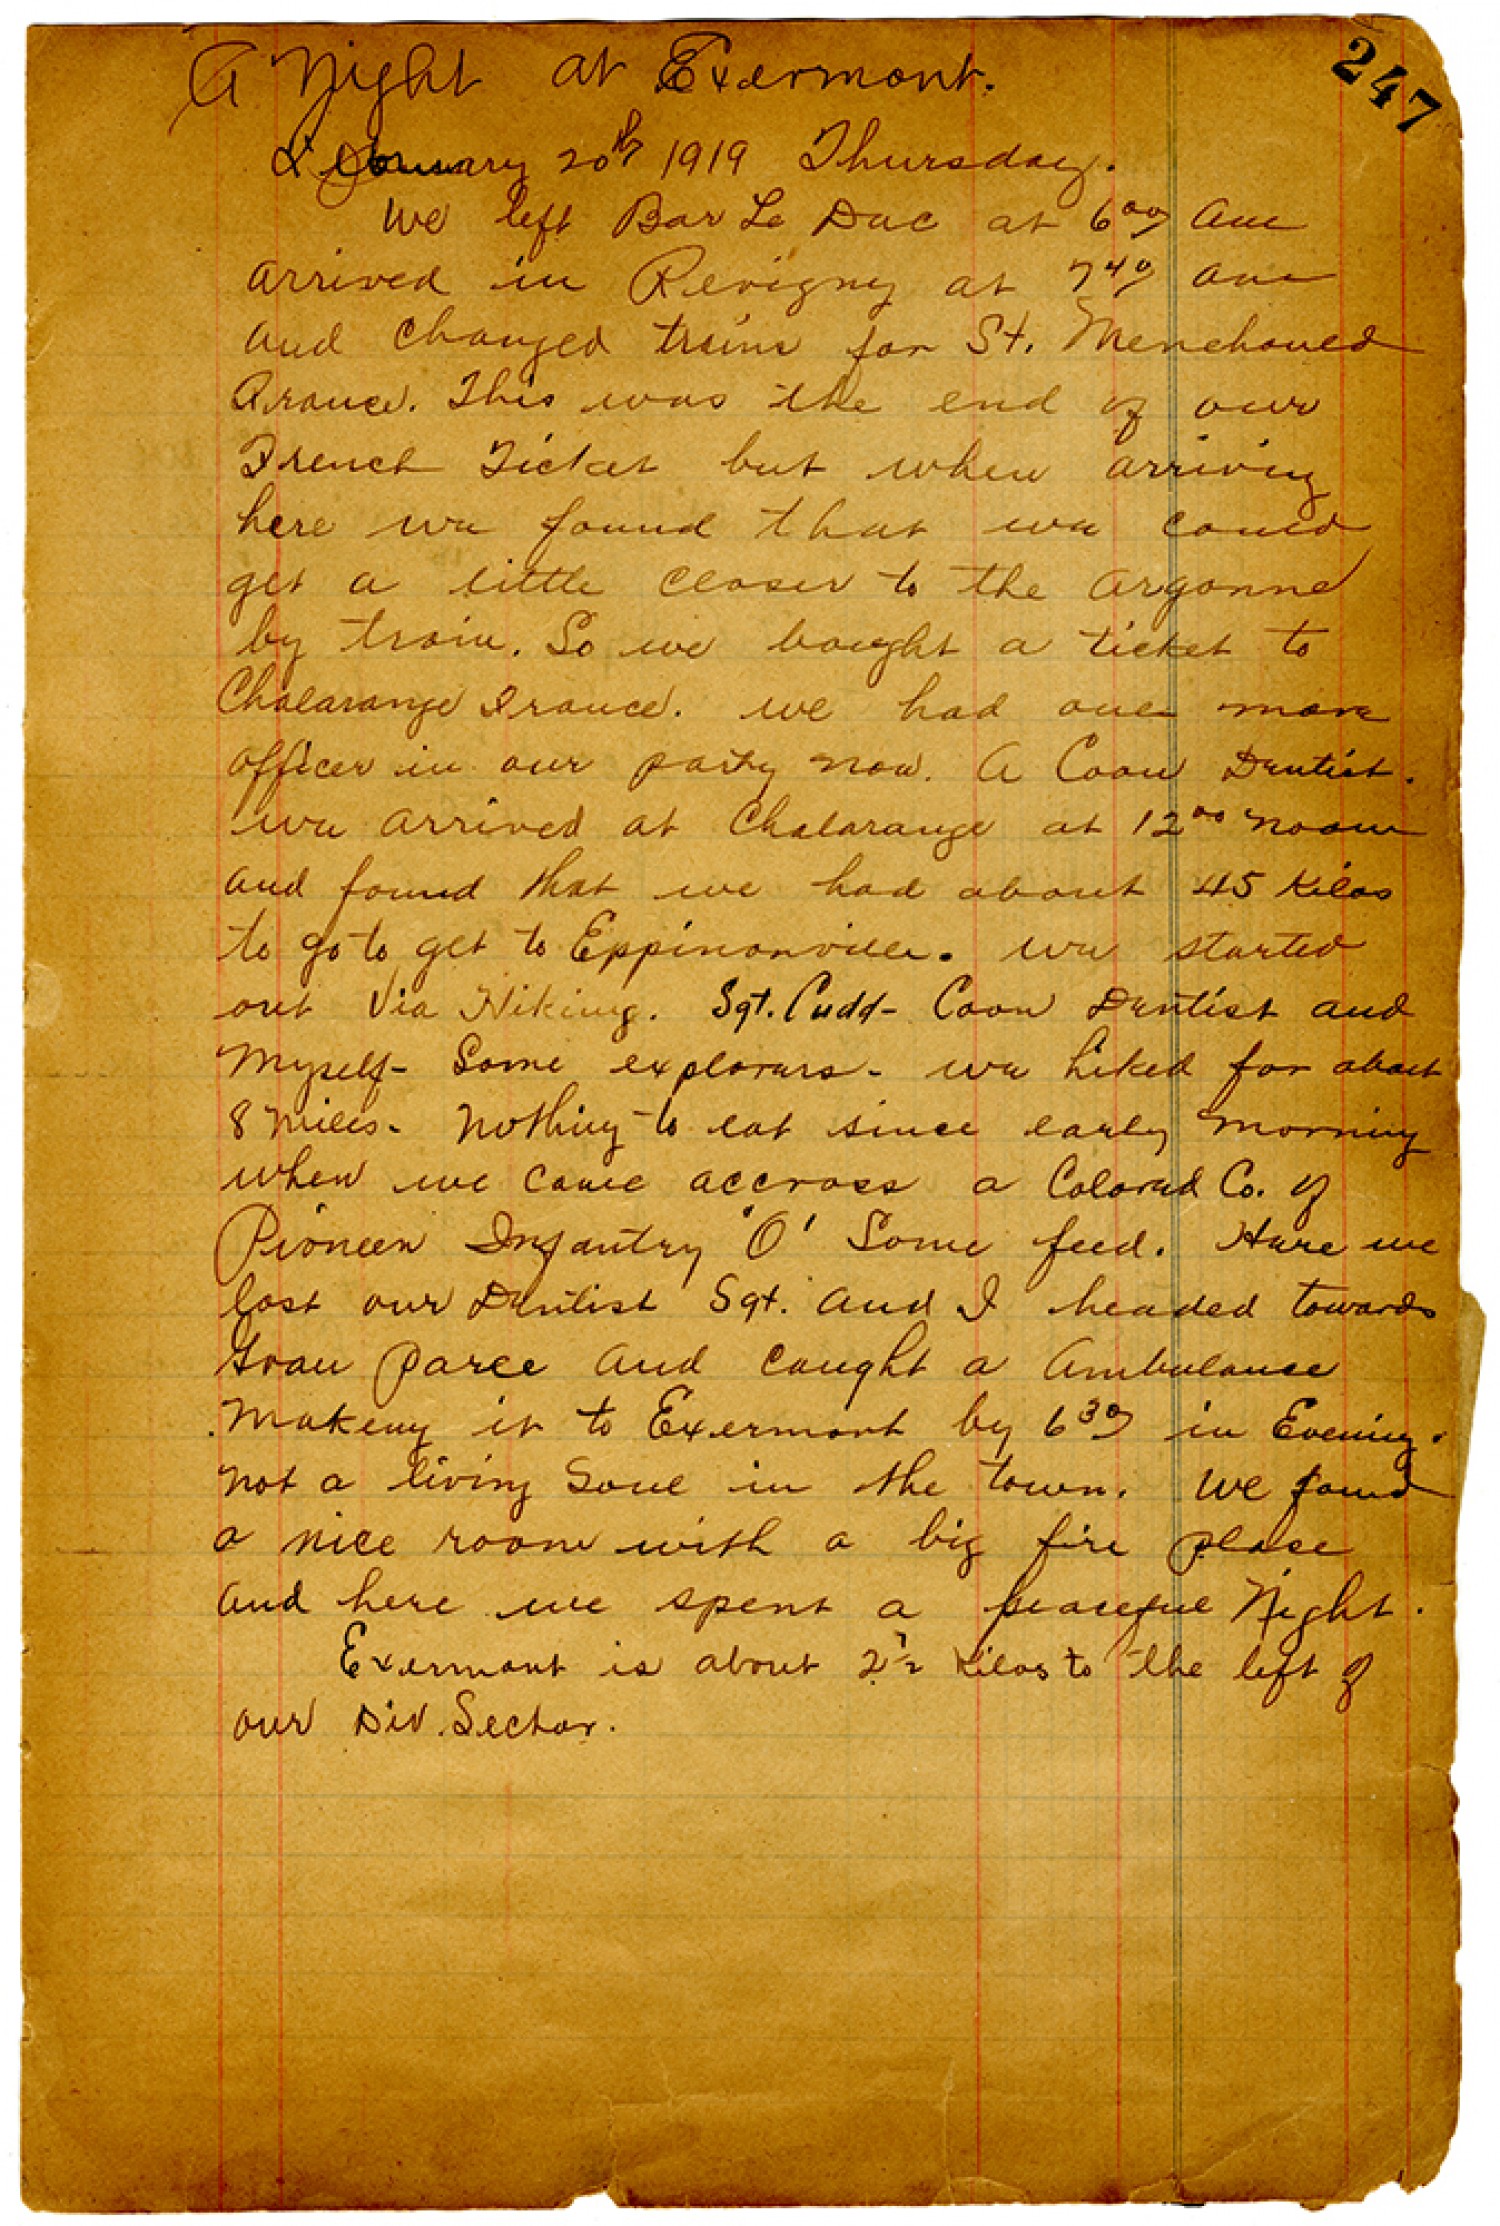 247
A Night at Exermont.
February 20th 1919 Thursday.
We left Bar Le Duc at 6 00 am
arrived in Revigny at 7 40 am
and changed trains for St. Menehoued
France. This was the end of our
French Ticket but when arriving
here we found that we could
get a little closer to the Argonne
by train. So we bought a ticket to
Chalarange France. we had one more
officer in our party now. A Coon Dentist.
we arrived at Chalarange at 12 00 noon
and found that we had about 45 Kilos
to go to get to Eppinonville. we started
out Via Hiking. Sgt. Cudd - Coon Dentist and
Myself - Some explorers - we hiked for about
8 Miles - Nothing to eat since early morning
when we came accross a Colored Co. of
Pioneer Infantry 'O' Some feed. Here we
lost our Dentist Sgt. and I headed towards
Gran Parce and caught a Ambulance
Makeing it to Exermont by 6 30 in Evening.
not a living Soul in the town. We found
a nice room with a big fire place
and here we spent a peaceful Night.
Exermont is about 2 1/2 Kilos to the left of
our Div. Sector.